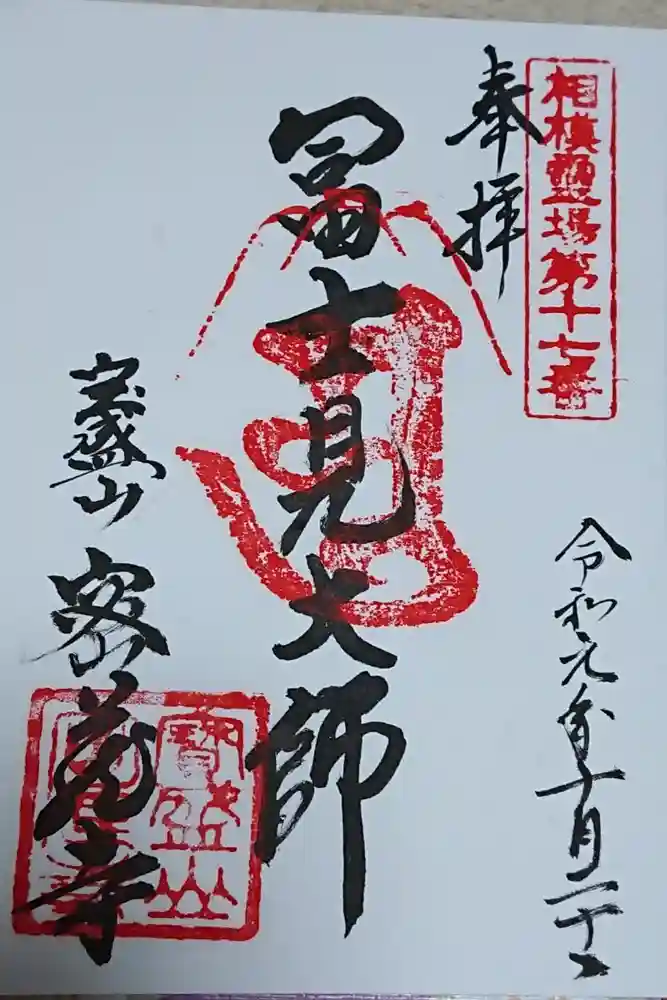 相模靈場第十七番
奉拝
冨士見大師
令和元年十月二十日
宝盛山
密蔵寺
寶盛山